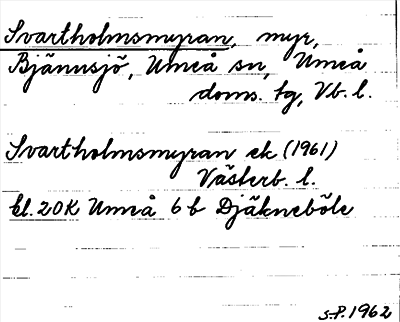 Svartholmsmyran, myr,
Bjännsjö, Umeå sn, Umeå
doms. tg, Vb. l.
Svartholmsmyran ek (1961)
Västerb. l.
bl. 20K Umeå 6 b Djäkneböle
S.P. 1962